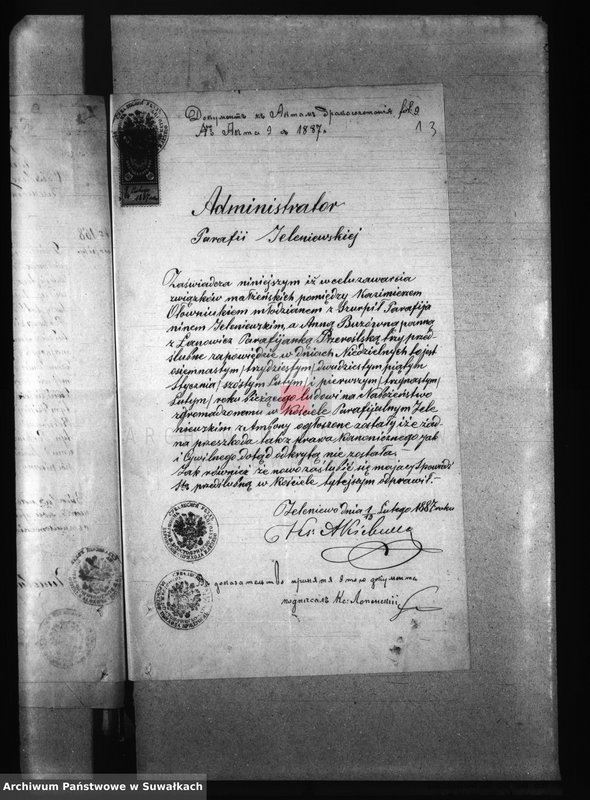 Документъ къ Актамъ Бракосочетанія
къ Акта 9 г 1887.
13
Administrator
Parafii Jeleniewskiej
Zaświadcza niniejszym iż w celu zawarcia
związków małżeńskich pomiędzy Kazimierzem
Ołownickiem młodzianem z Szurpił Parafija
ninem Jeleniewskim, a Anną Buzówną panną
z Łanowicz Parafijanką Przeroślską, trzy przed
ślubne zapowiedzie w dniach Niedzielnych to jest
osiemnastym /trzydziestym/ dwudziestym piątym
Stycznia /szóstym Lutym/ i pierwszym /trzynastym/
Lutym / roku bieżącego ludowi na Nabożeństwo
zgromadzonemu w Kościele Parafijalnym Jele
niewskim z Ambony ogłoszone zostały i że żad
na przeszkoda tak z prawa kanonicznego jak
i Cywilnego dotąd odkrytą nie została.
Jak również że nowozaślubić się mający Spowiedź
Stą przedślubną w Kościele tutejszym odprawił.-
Jeleniewo dnia 1/13 Lutego 1887 roku
Ks. A
Въ доказательство принятія этого документа
подписалъ Кс:
Archiwum Państwowe w Suwałkach